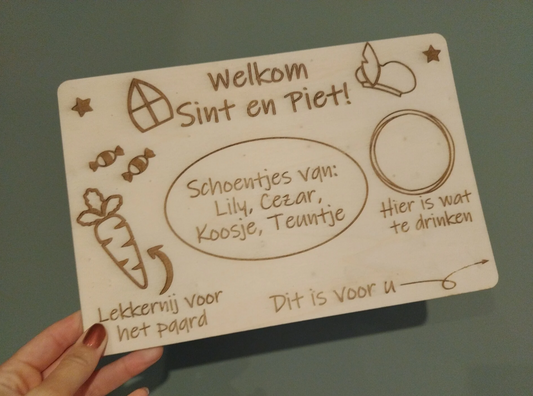 Welkom
Sint en Piet!
Schoentjes van:
Lily, Cezar,
Koosje, Teuntje
Hier is wat
te drinken
Lekkernij voor
het paard
Dit is voor u